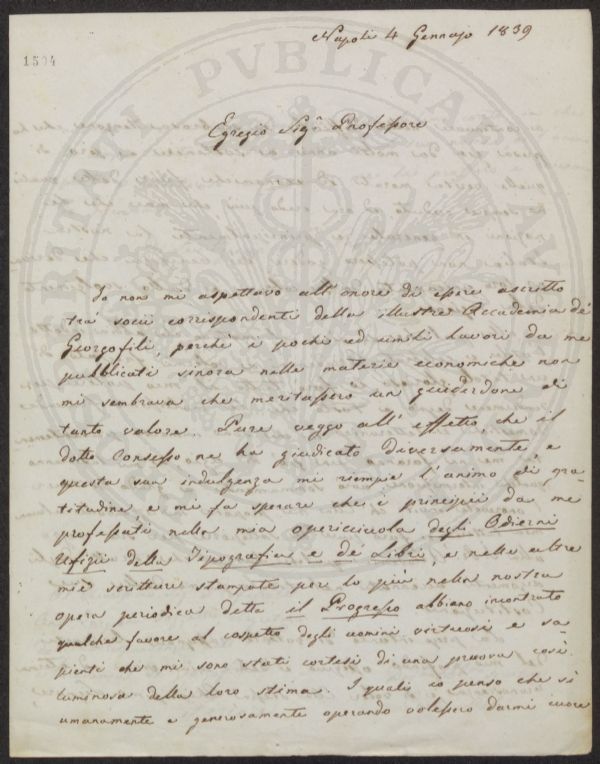 Napoli 4 Gennajo 1839
1504
Egregio Sigr Professore
Io non mi aspettavo all'onore di essere ascritto
tra' socii corrispondenti della illustre Accademia de'
Georgofili, perchè i pochi ed umili lavori da me
pubblicati sinora nelle materie economiche non
mi sembrava che meritassero un guiderdone di
tanto valore. Pure veggo all'effetto, che il
dotto Consesso ne ha giudicato diversamente, e
questa sua indulgenza mi riempie l'animo di gra-
titudine e mi fa sperare che i principii da me
professati nella mia opericciuola degli Odierni
Ufizii della Tipografia e de' Libri, e nelle altre
mie scritture stampate per lo più nella nostra
opera periodica detta il Progresso abbiano incontrato
qualche favore al cospetto degli uomini virtuosi e sa-
pienti che mi sono stati cortesi di una pruova così
luminosa della loro stima. I quali io penso che sì
umanamente e generosamente operando volessero darmi cuore
PUBLICAE